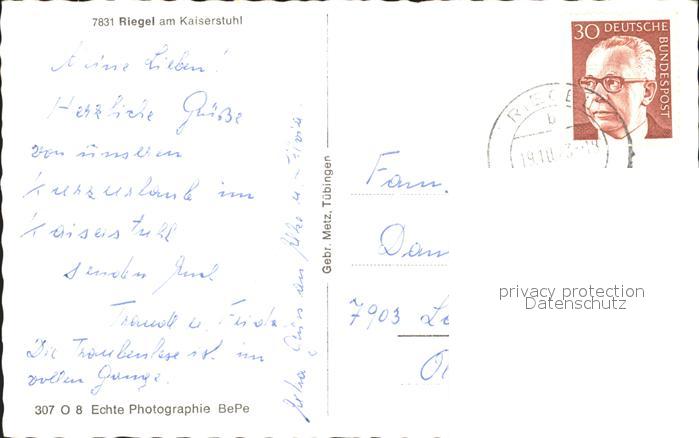 7831 Riegel am Kaiserstuhl
Meine Lieben!
Herzliche Grüße
von unseren
Kurzurlaub im
Kaiserstuhl
senden Euch
Traudl u. Frida
Die Traubenlese ist im
vollen Gange.
307 O 8 Echte Photographie BePe
Gebr. Metz, Tübingen
30 DEUTSCHE
BUNDESPOST
RIEGE
b
19.10.73-18
Fam.
Dan
7903
privacy protection
Datenschutz